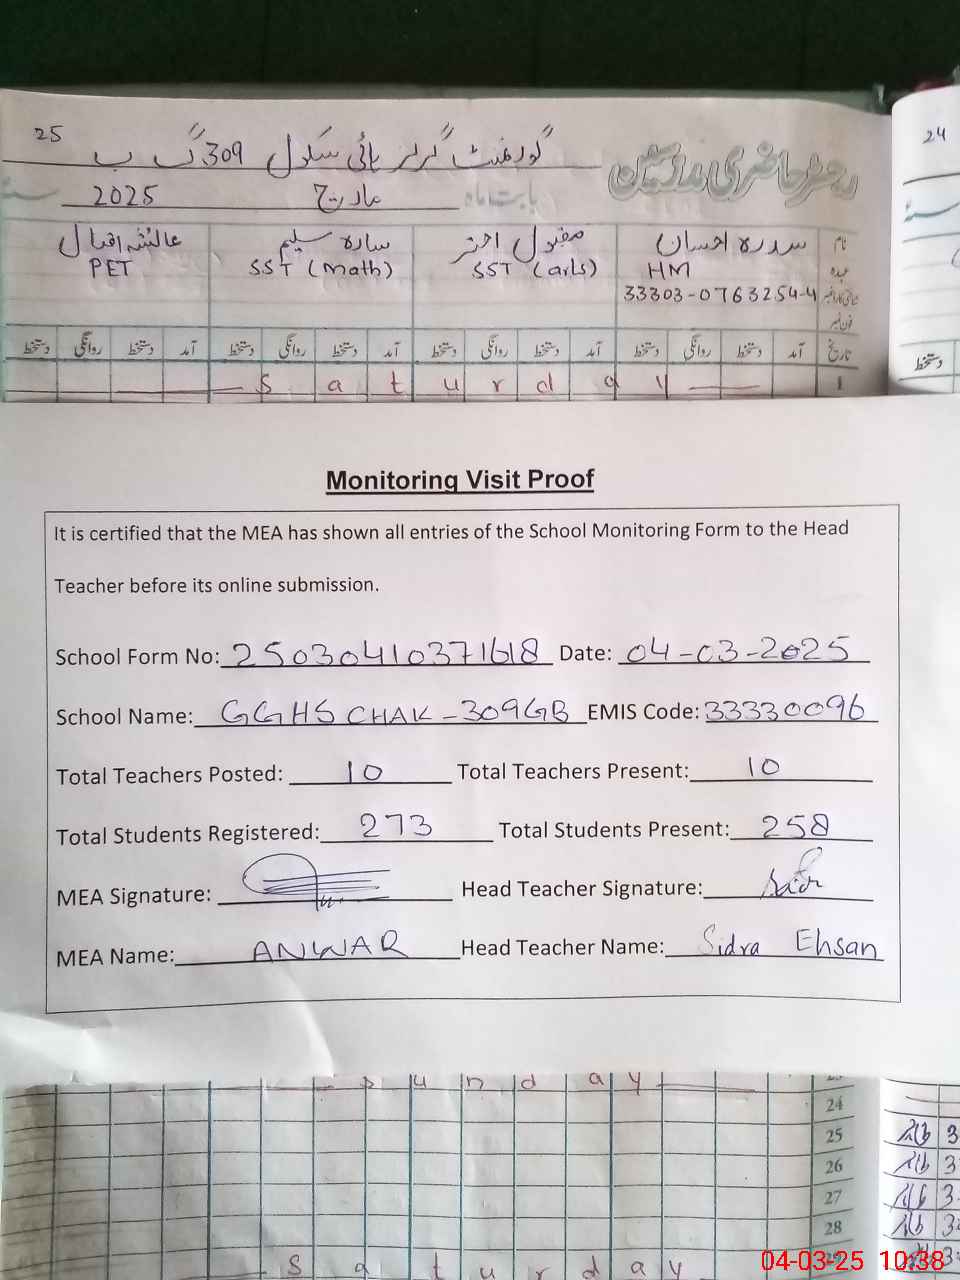 25
گورنمنٹ گرلز ہائی سکول 309 گ ب
رجسٹر حاضری مدرسین
24
بابت ماہ مارچ 2025
نام سدرہ احسان مقبول اختر سارہ سلیم عائشہ اقبال
عہدہ HM SST (arts) SST (Math) PET
33303-0763254-4
فون نمبر
تاریخ آمد دستخط روانگی دستخط آمد دستخط روانگی دستخط آمد دستخط روانگی دستخط آمد دستخط روانگی دستخط
دستخط
1 Saturday
Monitoring Visit Proof
It is certified that the MEA has shown all entries of the School Monitoring Form to the Head
Teacher before its online submission.
School Form No: 25030410371618 Date: 04-03-2025
School Name: GGHS CHAK-309GB EMIS Code: 33330096
Total Teachers Posted: 10 Total Teachers Present: 10
Total Students Registered: 273 Total Students Present: 258
MEA Signature: Head Teacher Signature:
MEA Name: ANWAR Head Teacher Name: Sidra Ehsan
sunday
24
25
26
27
28
29 Saturday
04-03-25 10:38